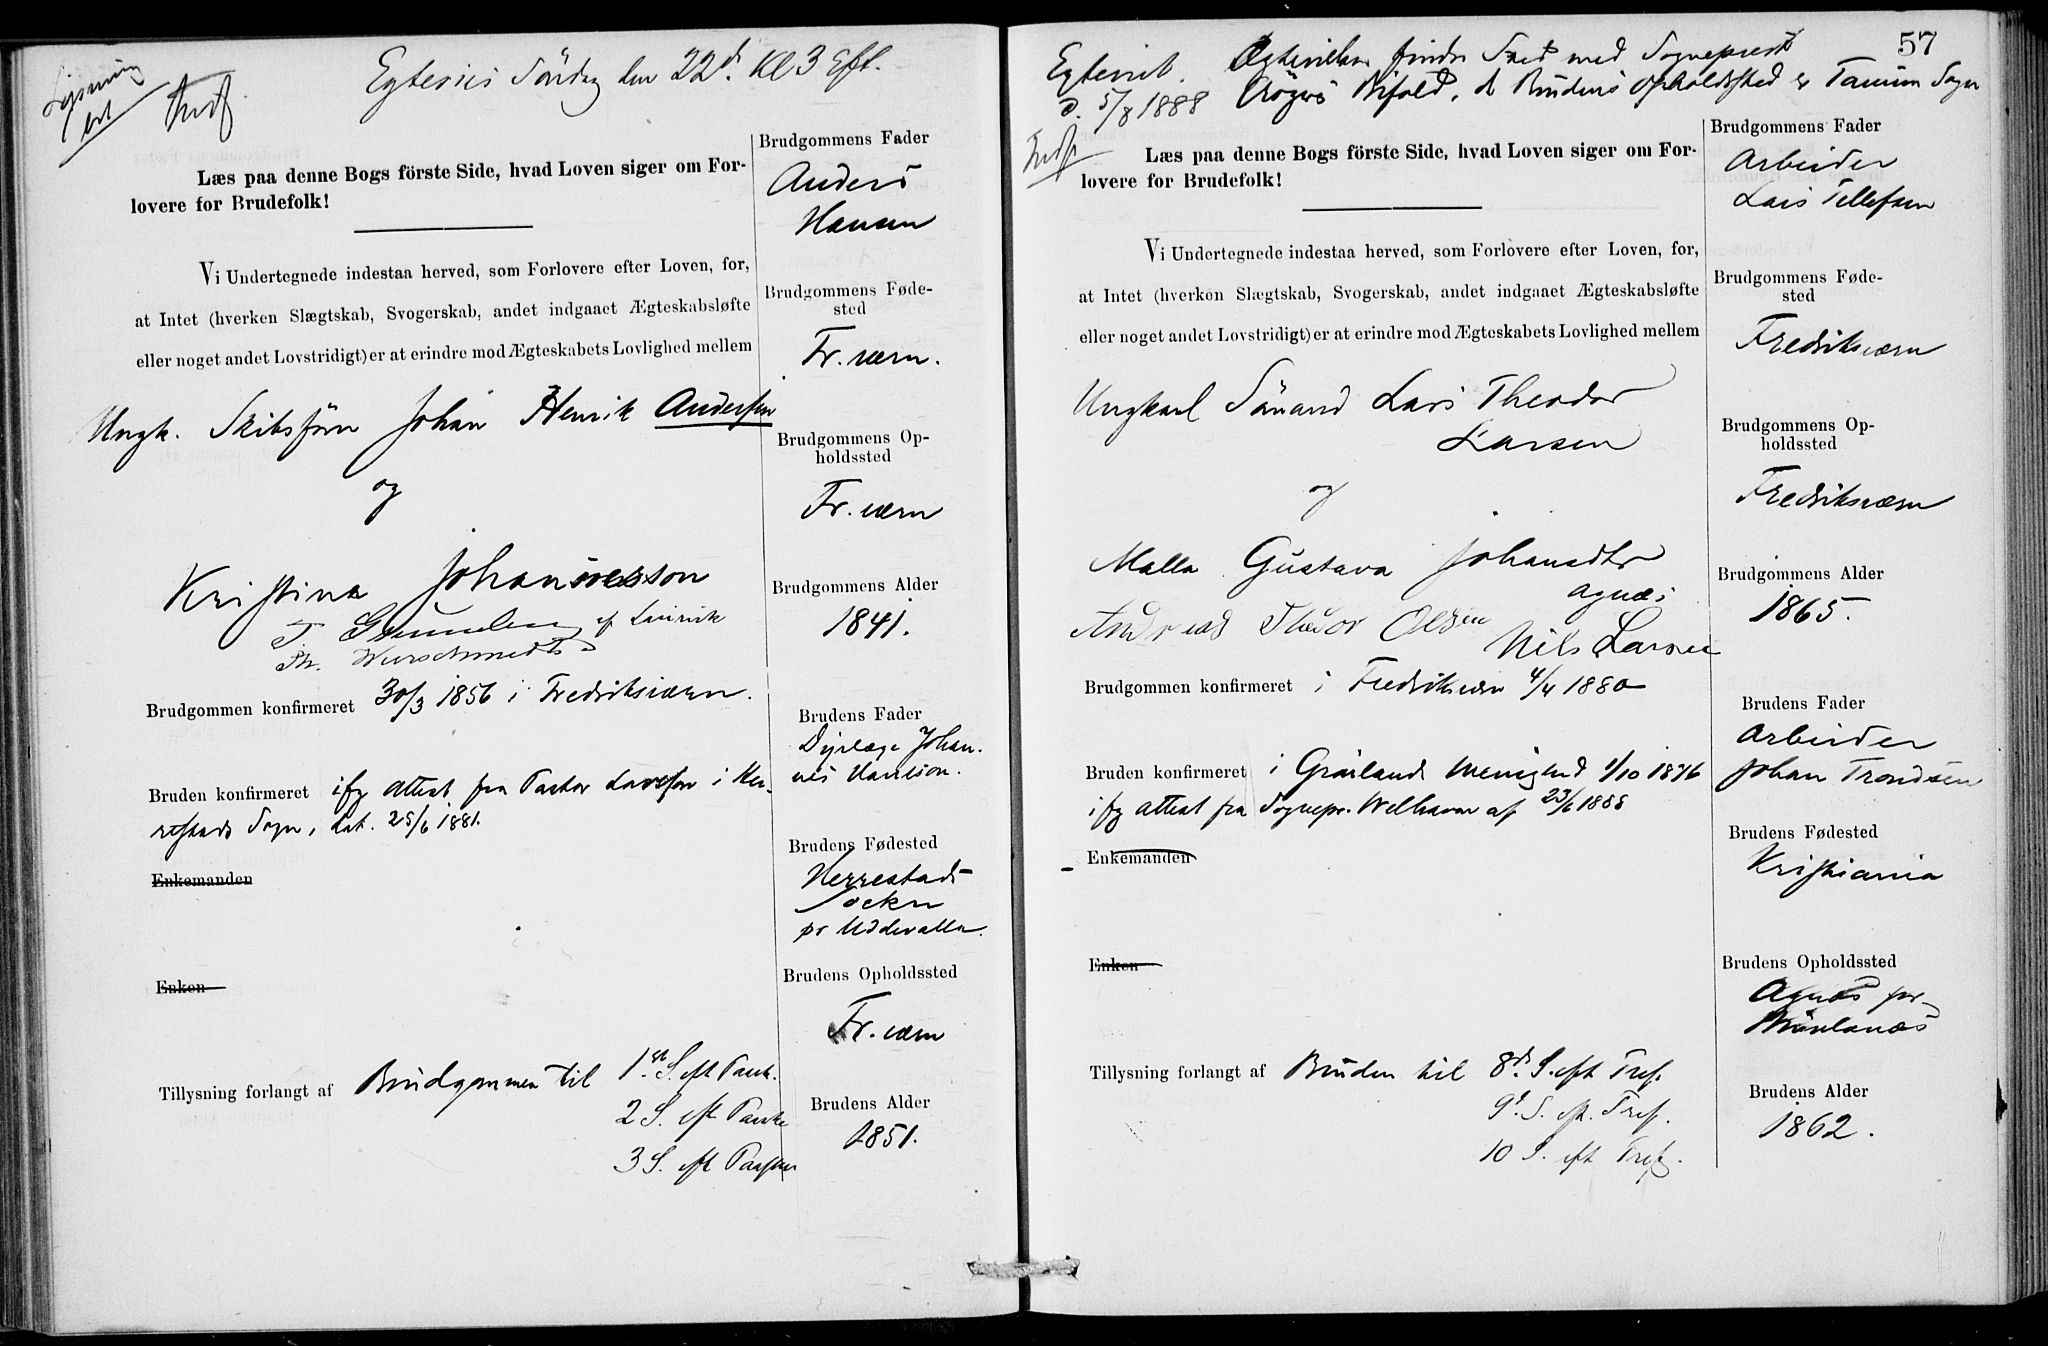 Lysning
Indf.
Egtevies Söndag den 22d. Kl 3 Eft.
Læs paa denne Bogs förste Side, hvad Loven siger om For-
lovere for Brudefolk!
Vi Undertegnede indestaa herved, som Forlovere efter Loven, for,
at Intet (hverken Slægtskab, Svogerskab, andet indgaaet Ægteskabsløfte
eller noget andet Lovstridigt) er at erindre mod Ægteskabets Lovlighed mellem
Ungk. Skibsförer Johan Henrik Andersen
og
Kristina Johannesson
af Laurvik
Brudgommen konfirmeret 30/3 1856 i Fredriksværn.
Bruden konfirmeret ifg attest fra Pastor i Her-
restads Sogn, dat. 25/6 1881.
Enkemanden
Enken
Tillysning forlangt af Brudgommen til 1st. S. eft Paask.
2 S. eft Paaske
3 S. eft Paasken
Brudgommens Fader
Anders
Hansen
Brudgommens Føde-
sted
Fr.værn.
Brudgommens Op-
holdssted
Fr.værn
Brudgommens Alder
1841.
Brudens Fader
Dyrlæge Johan-
nes
Brudens Fødested
Herrestads
Socken
pr Uddevalla.
Brudens Opholdssted
Fr.værn
Brudens Alder
1851.
57
Egteviet. finder Sted med Sogneprest
d. 5/8 1888 Bifald, da Brudens Opholdssted er Tanum Sogn
Indf.
Læs paa denne Bogs förste Side, hvad Loven siger om For-
lovere for Brudefolk!
Vi Undertegnede indestaa herved, som Forlovere efter Loven, for,
at Intet (hverken Slægtskab, Svogerskab, andet indgaaet Ægteskabsløfte
eller noget andet Lovstridigt) er at erindre mod Ægteskabets Lovlighed mellem
Ungkarl Sömand Lars Theodor
Larsen
og
Malla Gustava Johansdtr
Agnæs
Andreas Theodor Olsen
Nils Larsen
Brudgommen konfirmeret i Fredriksværn 4/4 1880
Bruden konfirmeret i Grönlands Menighed 1/10 1876
ifg attest fra Sognepr. Welhaven af 23/6 1888
Enkemanden
Enken
Tillysning forlangt af Bruden til 8d. S. eft Tref.
9d. S. eft. Tref.
10 S. eft Tref.
Brudgommens Fader
Arbeider
Lars Tellefsen
Brudgommens Føde-
sted
Fredriksværn
Brudgommens Op-
holdssted
Fredriksværn
Brudgommens Alder
1865.
Brudens Fader
Arbeider
Johan Trondsen
Brudens Fødested
Kristiania
Brudens Opholdssted
Agnæs pr
Brunlanæs
Brudens Alder
1862.